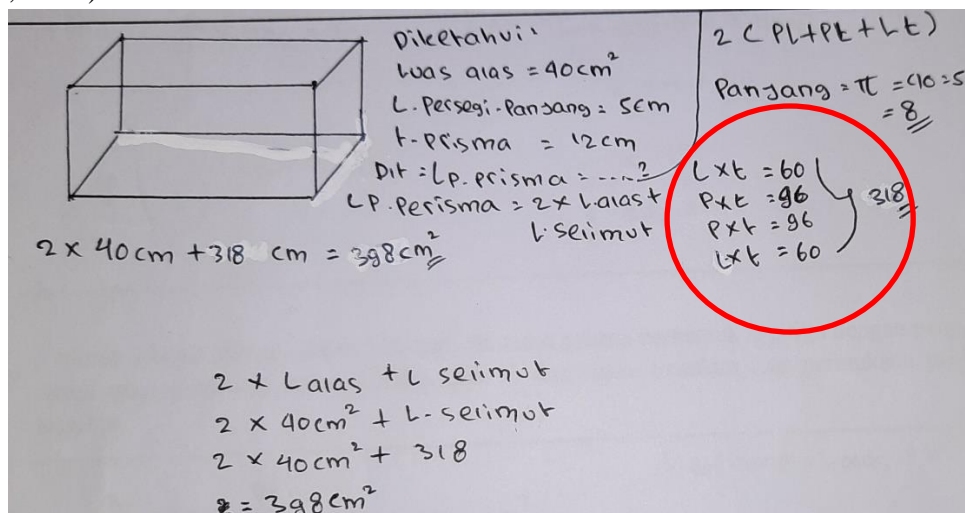 Diketahui:
Luas alas = 40cm²
L. Persegi-Panjang = 5cm
t-Prisma = 12cm
Dit = Lp. Prisma = ....?
LP. Perisma = 2 x L.alas +
L. Selimut
2 x 40cm + 318 cm = 398cm²
2 ( Pl + Pt + Lt )
Panjang = π = 40 = 5
= 8
L x t = 60
P x t = 96
P x t = 96
L x t = 60
318
2 x L alas + L selimut
2 x 40cm² + L-selimut
2 x 40cm² + 318
= 398cm²